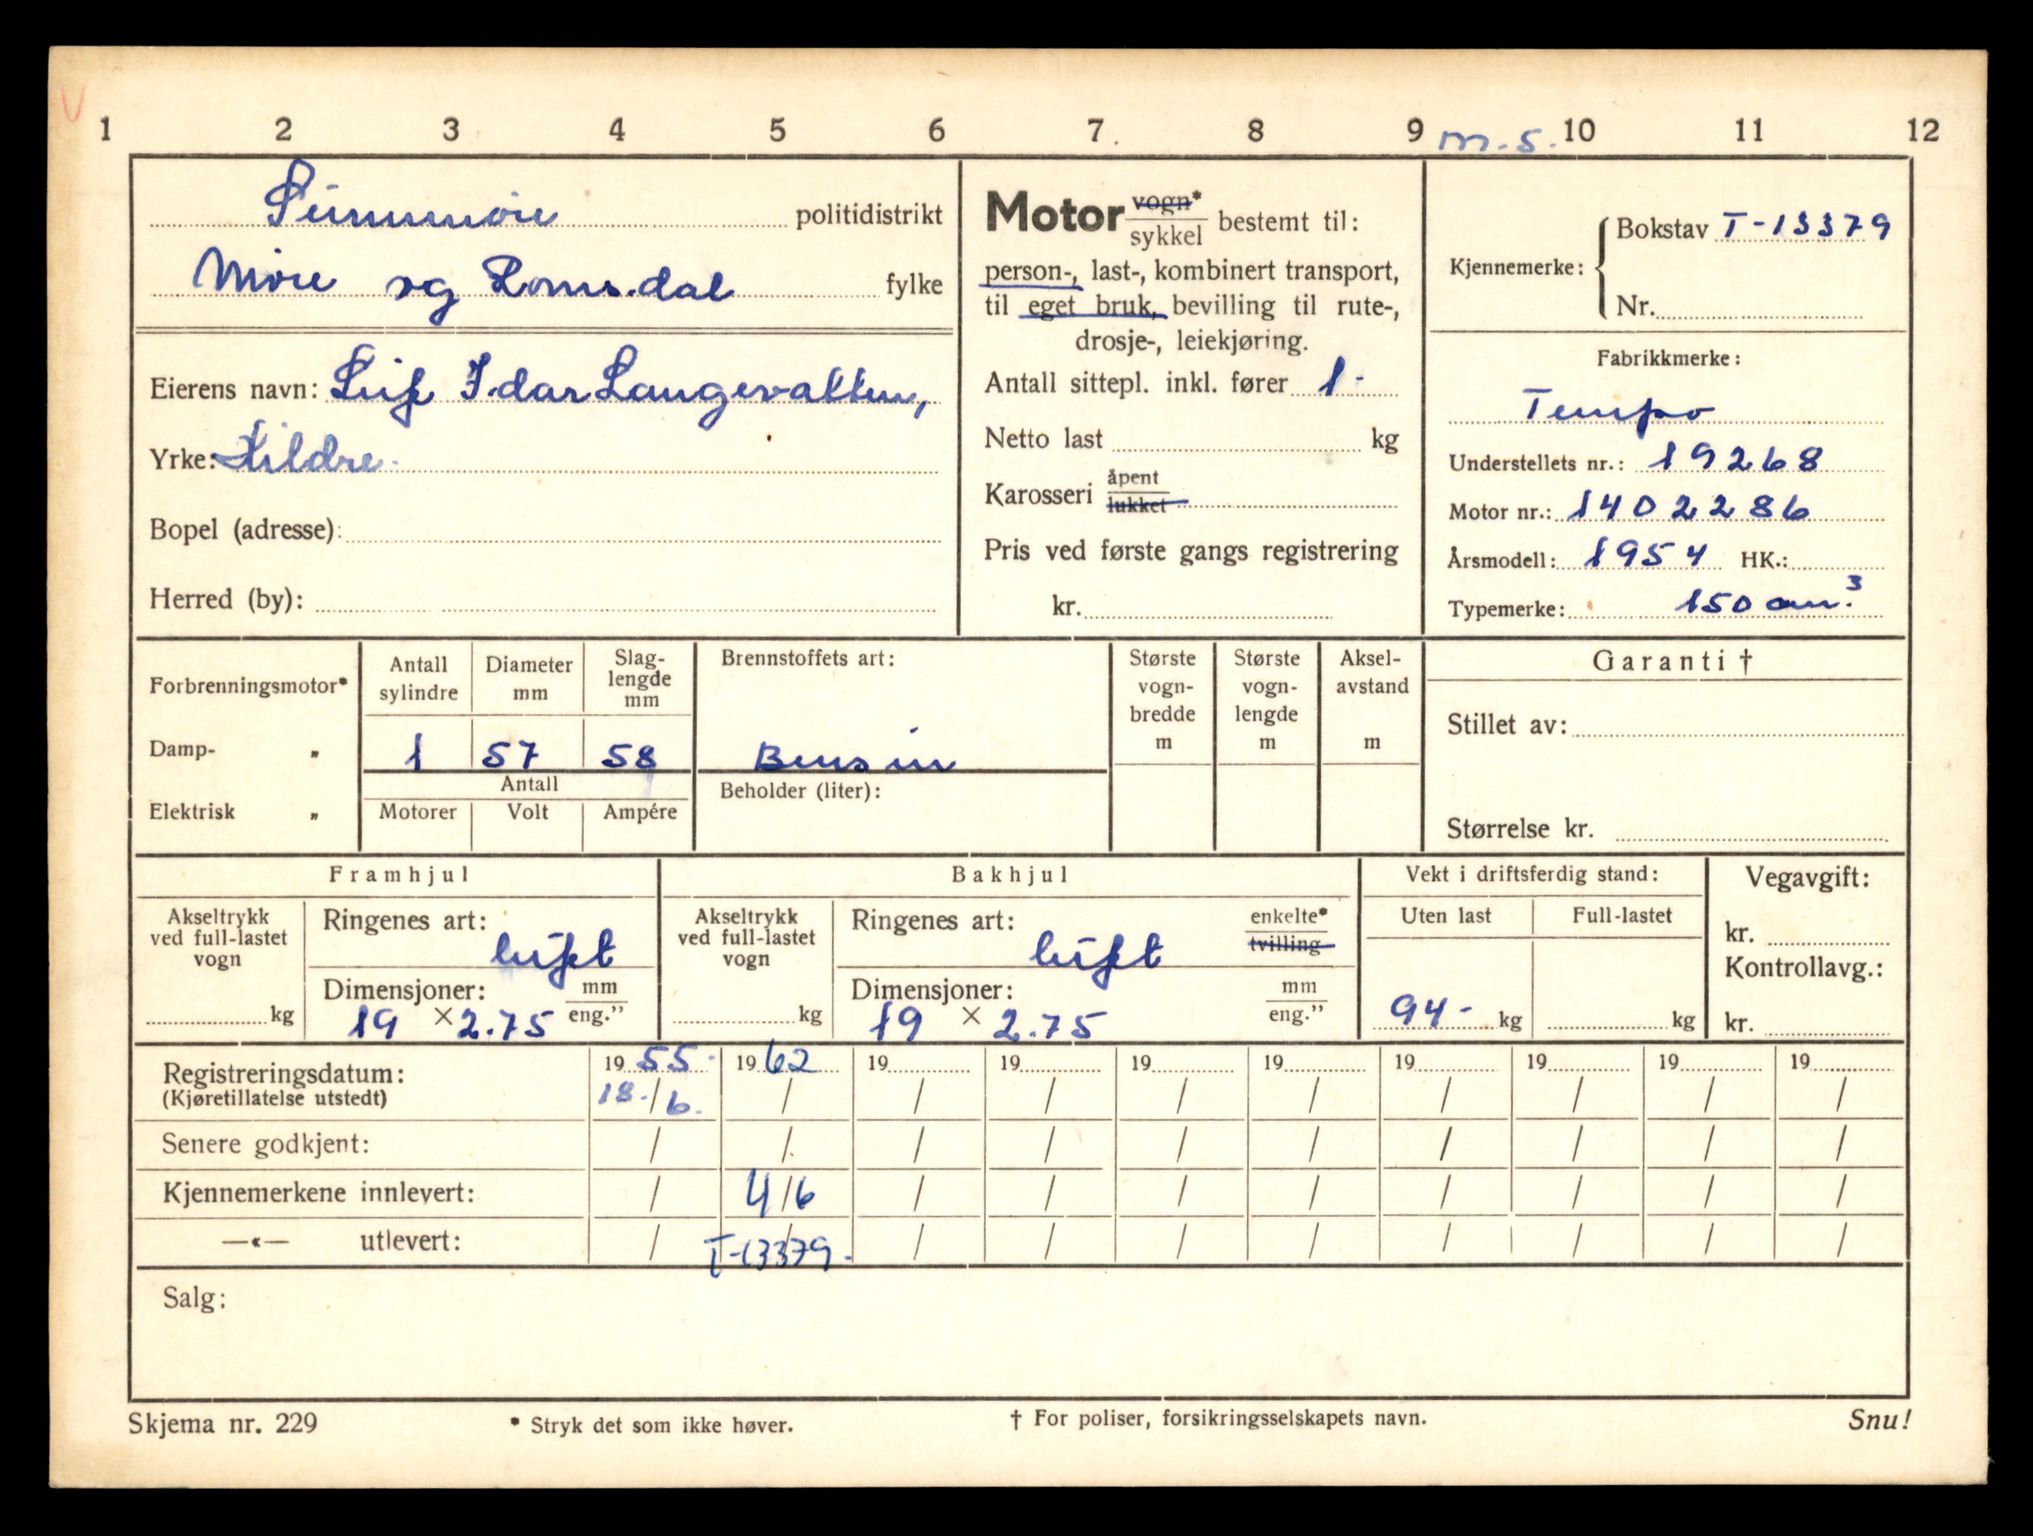 1 2 3 4 5 6 7 8 9 m.s. 10 11 12
Sunnmøre politidistrikt
Møre og Romsdal fylke
Eierens navn: Leif Idar Langevatten,
Yrke: Kildre.
Bopel (adresse):
Herred (by):
Motor vogn*
sykkel bestemt til:
person-, last-, kombinert transport,
til eget bruk, bevilling til rute-,
drosje-, leiekjøring.
Antall sittepl. inkl. fører 1-
Netto last kg
Karosseri åpent
lukket
Pris ved første gangs registrering
kr.
Kjennemerke: Bokstav T-13379
Nr.
Fabrikkmerke:
Tempo
Understellets nr.: 19268
Motor nr.: 1402286
Årsmodell: 1954 HK.:
Typemerke: 150 cm.³
Forbrenningsmotor*
Damp- „
Elektrisk „
Antall sylindre
Diameter mm
Slag-
lengde
mm
1 57 58
Antall
Motorer Volt Ampére
Brennstoffets art:
Bensin
Beholder (liter):
Største
vogn-
bredde
m
Største
vogn-
lengde
m
Aksel-
avstand
m
Garanti †
Stillet av:
Størrelse kr.
Framhjul
Akseltrykk
ved full-lastet
vogn
kg
Ringenes art:
luft
Dimensjoner: mm
19 × 2.75 eng.”
Bakhjul
Akseltrykk
ved full-lastet
vogn
kg
Ringenes art: enkelte*
luft tvilling
Dimensjoner: mm
19 × 2.75 eng.”
Vekt i driftsferdig stand:
Uten last Full-lastet
94- kg kg
Vegavgift:
kr.
Kontrollavg.:
kr.
Registreringsdatum: 1955. 1962 19 19 19 19 19 19 19 19
(Kjøretillatelse utstedt) 18./6. / / / / / / / / /
Senere godkjent: / / / / / / / / / /
Kjennemerkene innlevert: / 4/6 / / / / / / / /
—«— utlevert: / T-13379. / / / / / / / /
Salg:
Skjema nr. 229 * Stryk det som ikke høver. † For poliser, forsikringsselskapets navn. Snu!